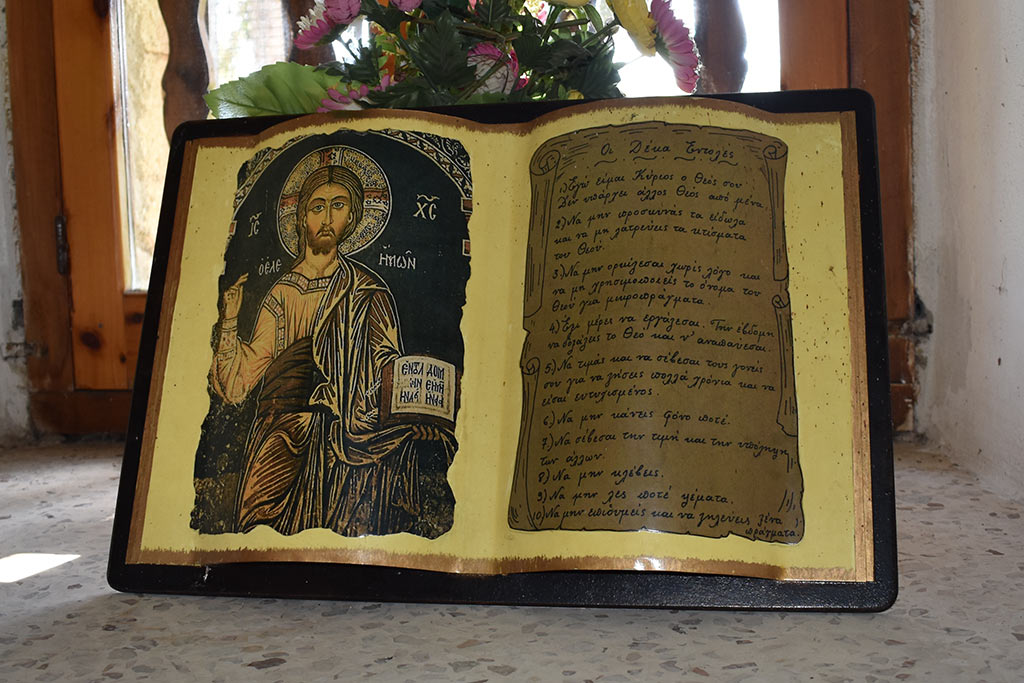 ΙС
ΧС
ΟΕΛΕ
ΗΜΩΝ
Οι Δέκα Εντολές
1) Εγώ είμαι Κύριος ο Θεός σου
Δεν υπάρχει άλλος Θεός από μένα
2) Να μην προσκυνάς τα είδωλα
και να μη λατρεύεις τα κτίσματα
του Θεού.
3) Να μην ορκίζεσαι χωρίς λόγο και
να μη χρησιμοποιείς το όνομα του
Θεού για μικροπράγματα.
4) Έξι μέρες να εργάζεσαι. Την έβδομη
να δοξάζεις το Θεό και ν' αναπαύεσαι.
5) Να τιμάς και να σέβεσαι τους γονείς
σου για να ζήσεις πολλά χρόνια και να
είσαι ευτυχισμένος.
6) Να μην κάνεις φόνο ποτέ.
7) Να σέβεσαι την τιμή και την υπόληψη
των άλλων.
8) Να μην κλέβεις.
9) Να μην λες ποτέ ψέματα.
10) Να μην επιθυμείς και να ζηλεύεις ξένα
πράγματα.